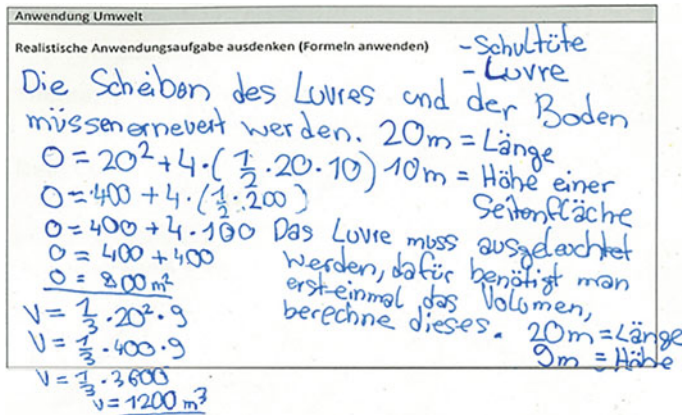 Anwendung Umwelt
Realistische Anwendungsaufgabe ausdenken (Formeln anwenden)
- Schultüte
- Luvre
Die Scheiben des Luvres und der Boden
müssen erneuert werden. 20m = Länge
O = 20² + 4 · (1/2 · 20 · 10) 10m = Höhe einer
Seitenfläche
O = 400 + 4 · (1/2 · 200)
O = 400 + 4 · 100
O = 400 + 400
O = 800 m²
Das Luvre muss ausgeleuchtet
werden, dafür benötigt man
erst einmal das Volumen,
berechne dieses. 20m = Länge
9m = Höhe
V = 1/3 · 20² · 9
V = 1/3 · 400 · 9
V = 1/3 · 3600
V = 1200 m³